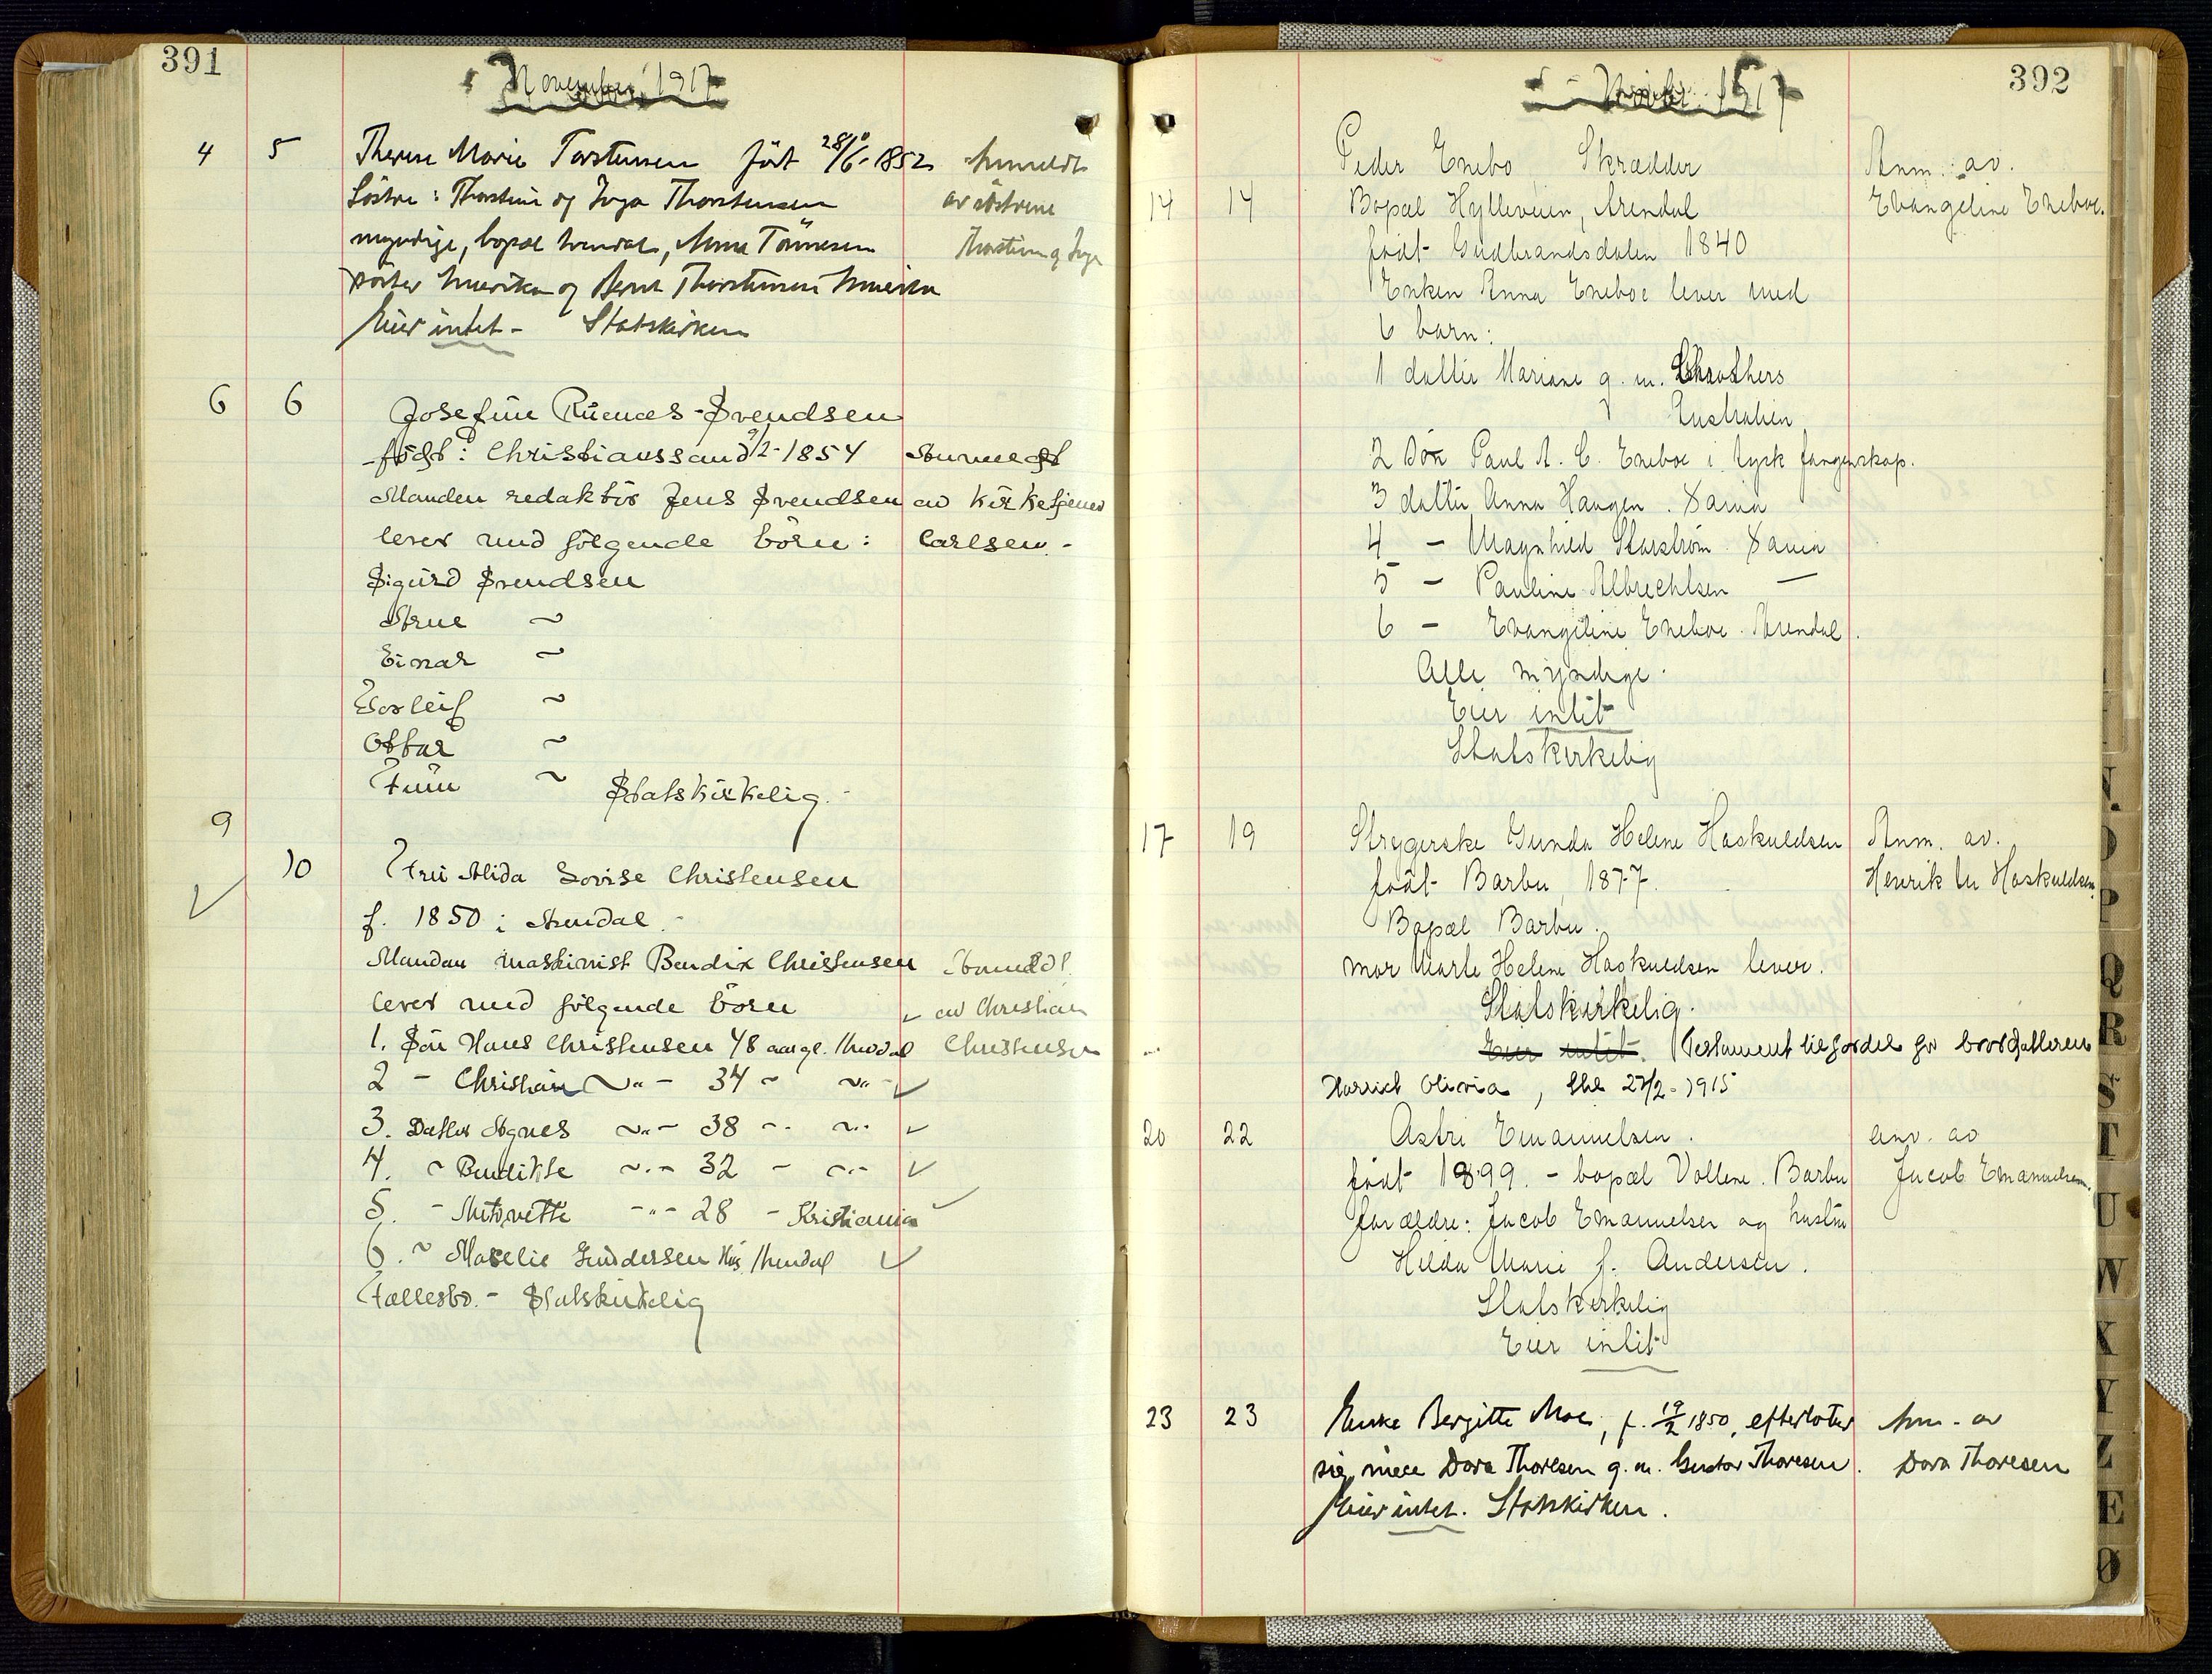 391
November 1917
4 5 Therese Marie Torstensen født 28/6-1852 Anmeldt
Söstre: Thorstine og Inga Thorstensen av söstrene
myndige, bopæl Arendal, Anna Tönnesen Thorstine og Inga
söster Amerika og Bernt Thorstensen Amerika
Eier intet - Statskirken
6 6 Josefine Svendsen
född: Christianssand 9/2-1854 Anmeldt
Manden redaktör Jens Svendsen av Kirketjener
lever med fölgende börn: Carlsen.-
Sigurd Svendsen
Arne ~
Einar ~
Torleif ~
Ottar ~
Finn ~ Statskirkelig.-
9
10 Fru Alida Lovise Christensen
f. 1850 i Arendal.-
Manden maskinist Bendix Christensen Anmeldt
lever med fölgende börn av Christian
1. Sön Hans Christensen 48 aar gl. Arendal Christensen
2 - Christian ~"- 34 ~ ~"-
3. Datter Agnes ~"- 38 -. ~"
4. ~ Bendikte ~"- 32 - ~"-
5. - Antonette -"- 28 - Kristiania
6. ~ Maselie Gundersen Arendal
Fællesbo.- Statskirkelig
392
Novbr. 1917
Peder Enebo Skrædder Anm. av.
14 14 Bopæl Hylleveien, Arendal Evangeline Eneboe.
født Gudbrandsdalen 1840
Enken Anna Eneboe lever med
6 barn:
1 datter Mariane g. m.
Australien
2 Søn Paul A. C. Eneboe i tysk fangenskap.
3 datter Anna Haugen. Xania
4 - Magnhild Xania
5 - Pauline Albrechtsen —
6 - Evangeline Eneboe. Arendal.
Alle myndige.
Eier intet
Statskirkelig
17 19 Strygerske Gunda Helene Haskuldsen Anm. av.
født Barbu 1877. Henrik M Haskuldsen.
Bopæl Barbu.
mor Marte Helene Haskuldsen lever.
Statskirkelig.
Eier intet. Testament til fordel for brordatteren
Harriet Olivia, 27/2-1915
20 22 Astri Emanuelsen. anm. av
født 1899. - bopæl Vollene. Barbu Jacob Emanuelsen.
forældre: Jacob Emanuelsen og hustru
Hilda Marie f. Andersen.
Statskirkelig
Eier intet
23 23 Enke Bergitte Moe, f. 19/2 1850, efterlater Anm. av
sig niece Dora Thoresen g. m. Gustav Thoresen. Dora Thoresen
Eier intet. Statskirken.
N.
O
P
Q
R
S
T
U
W
X
Y
Z
Æ
Ø